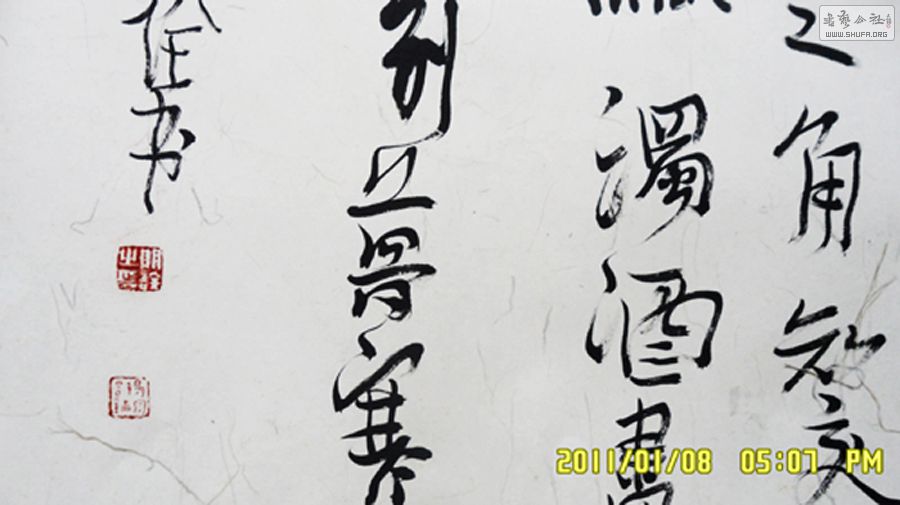 之角知交
濁酒盡
别夢寒
佺书
書藝公社
WWW.SHUFA.ORG
2011/01/08 05:07 PM